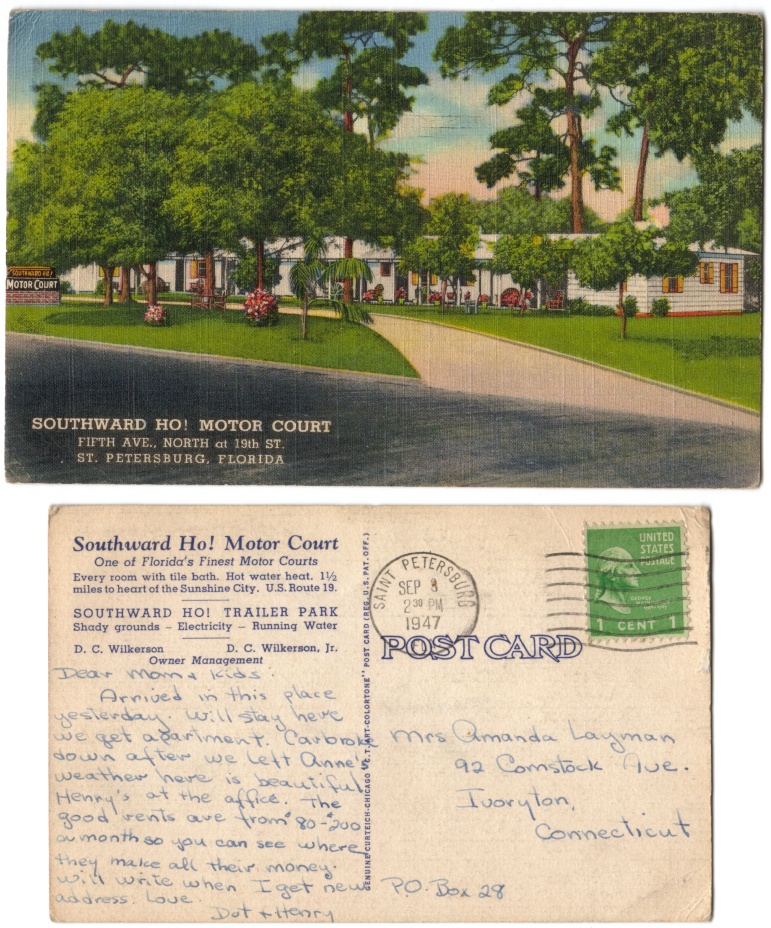 SOUTHWARD HO!
MOTOR COURT
SOUTHWARD HO! MOTOR COURT
FIFTH AVE., NORTH at 19th ST.
ST. PETERSBURG, FLORIDA
Southward Ho! Motor Court
One of Florida's Finest Motor Courts
Every room with tile bath. Hot water heat. 1½
miles to heart of the Sunshine City. U.S. Route 19.
SOUTHWARD HO! TRAILER PARK
Shady grounds – Electricity – Running Water
D. C. Wilkerson D. C. Wilkerson, Jr.
Owner Management
Dear Mom & Kids:
Arrived in this place
yesterday. Will stay here
we get apartment. Car broke
down after we left Anne's
weather here is beautiful
Henry's at the office. The
good rents are from $80-$200
a month so you can see where
they make all their money.
Will write when I get new
address. Love.
Dot & Henry
GENUINE CURTEICH-CHICAGO "C.T. ART-COLORTONE" POST CARD (REG. U.S. PAT. OFF.)
SAINT PETERSBURG
SEP
2 30 PM
1947
UNITED
STATES
POSTAGE
1 CENT 1
POST CARD
Mrs Amanda Layman
92 Comstock Ave.
Ivoryton,
Connecticut
P.O. Box 28